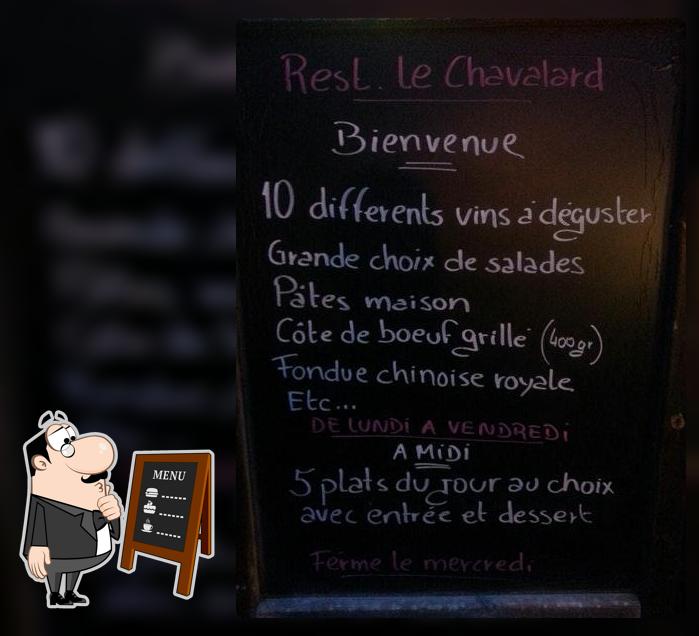 Rest. Le Chavalard
Bienvenue
10 differents vins à déguster
Grande choix de salades
Pâtes maison
Côte de boeuf grillé (400gr)
Fondue chinoise royale
Etc...
DE LUNDI A VENDREDi
A MiDi
5 plats du jour au choix
avec entrée et dessert
Ferme le mercredi
MENU